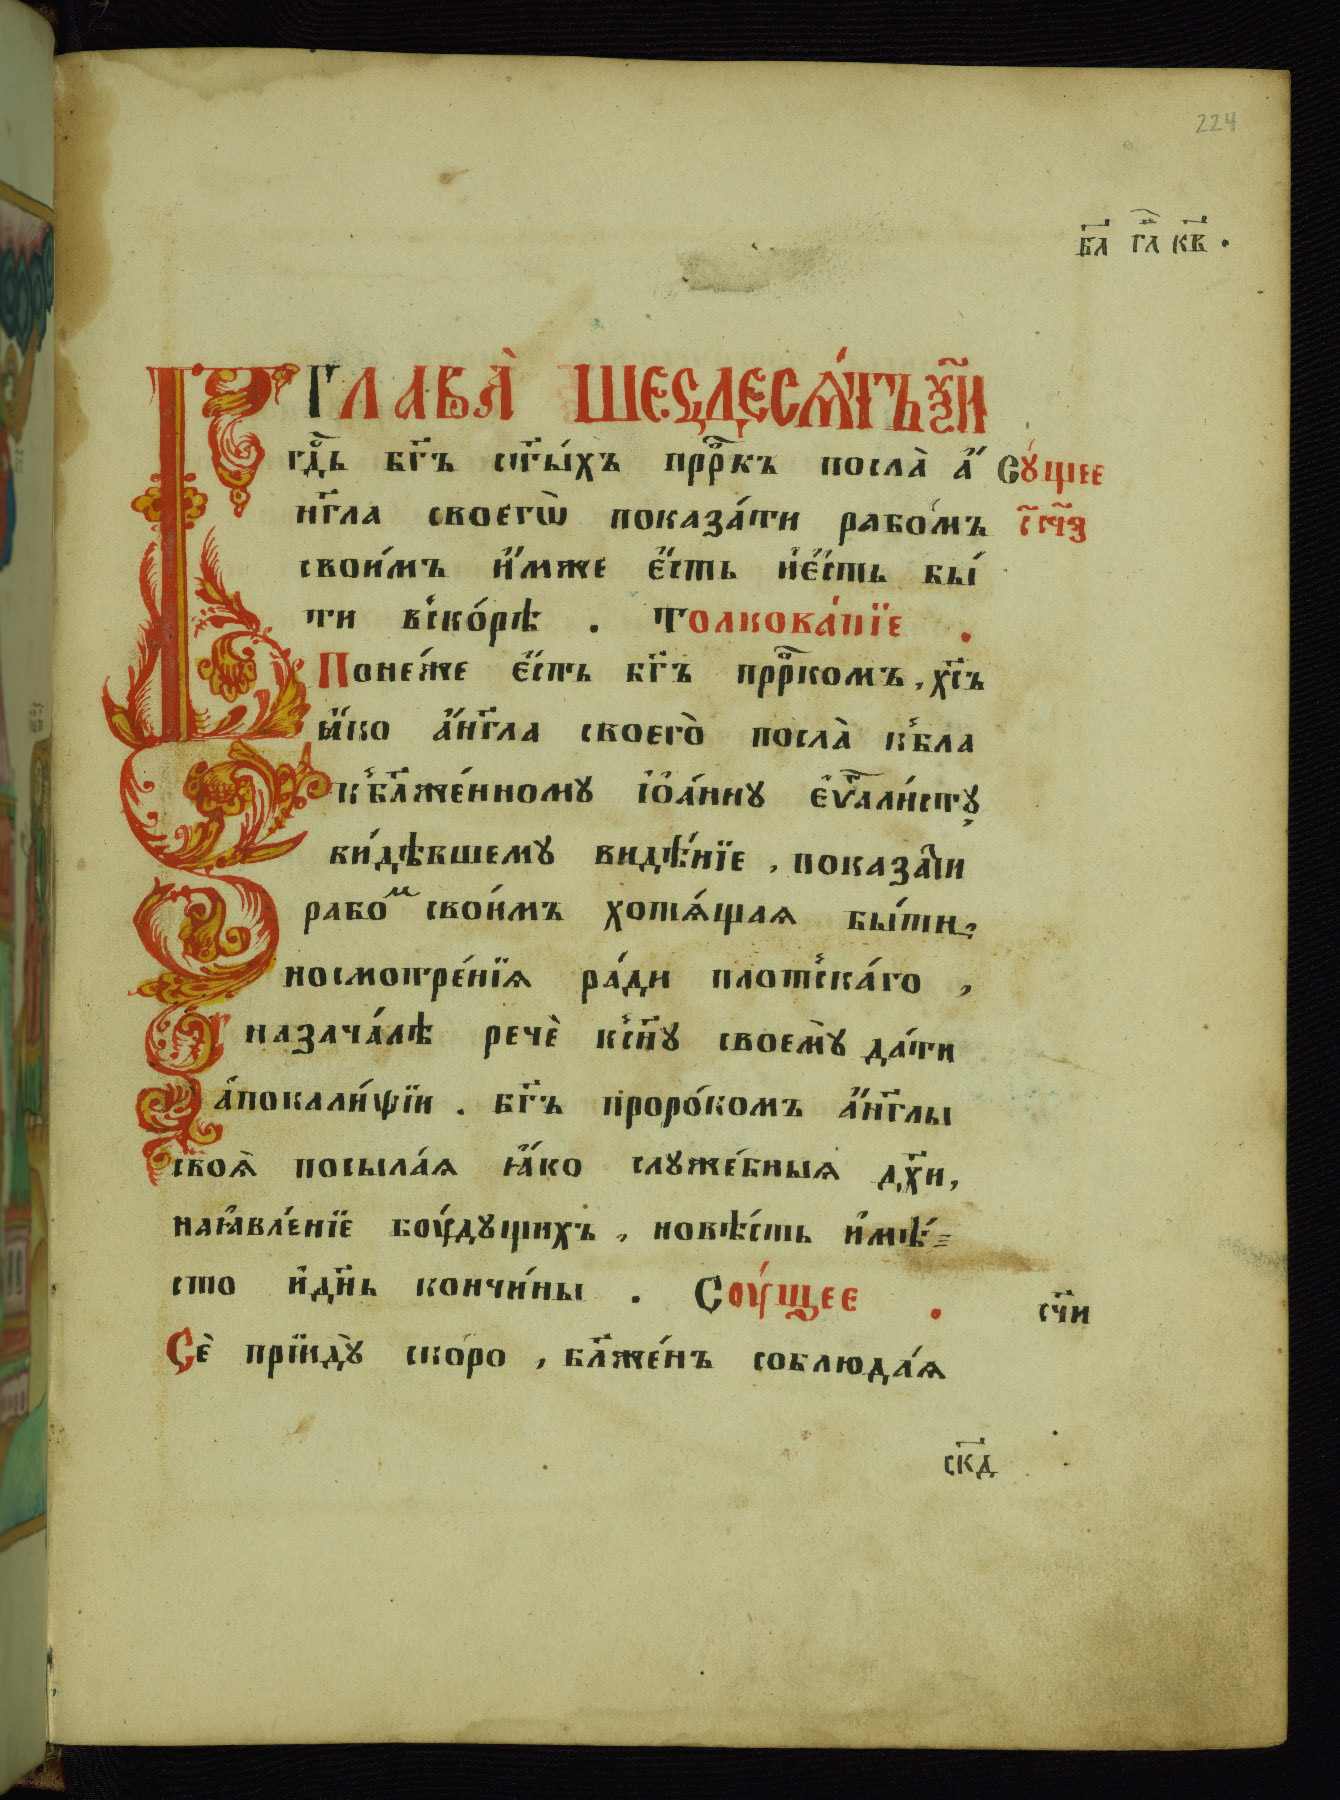 224
б҃л гл҃ к҃в .
Глава̀ шесдеся́тъ у҃и
гд҃ь бг҃ъ ст҃ы́хъ прⷪ҇ркъ посла̀ а҆́ Су́щее
нг҃ла своегѡ̀ показа́ти рабо́мъ с҃ч҃з
свои́мъ и҆́мже є҆́сть и҆є҆́сть бы́
ти вско́рѣ . Толкова́нїе .
Поне́же є҆́сть бг҃ъ прⷪ҇ркомъ , хс҃ъ
ꙗ҆́ко а҆́нг҃ла своего̀ посла̀ кбла
кбл҃же́нному і҆ѡ҆а́нну є҆ѵ҃али́сту
ви́дѣвшему видѣ́нїе , показа́ти
рабоⷨ свои́мъ хотѧ́щаѧ бы́ти ,
носмотре́нїѧ ра́ди плотска́го ,
назача́лѣ речѐ ксн҃у своемꙋ̀ да́ти
а҆покали́ѱїи . бг҃ъ проро́комъ а҆́нг҃лы
своѧ̀ посыла́ѧ ꙗ҆́ко служе́бныѧ дх҃и ,
наꙗ҆вле́нїе боу́дущихъ , новѣ́сть и҆мѣ́
сто и҆дн҃ь кончи́ны . Соу́щее . сч҃и
Сѐ прїиду̀ ско́ро , бл҃же́нъ соблюда́ѧ
ск҃д